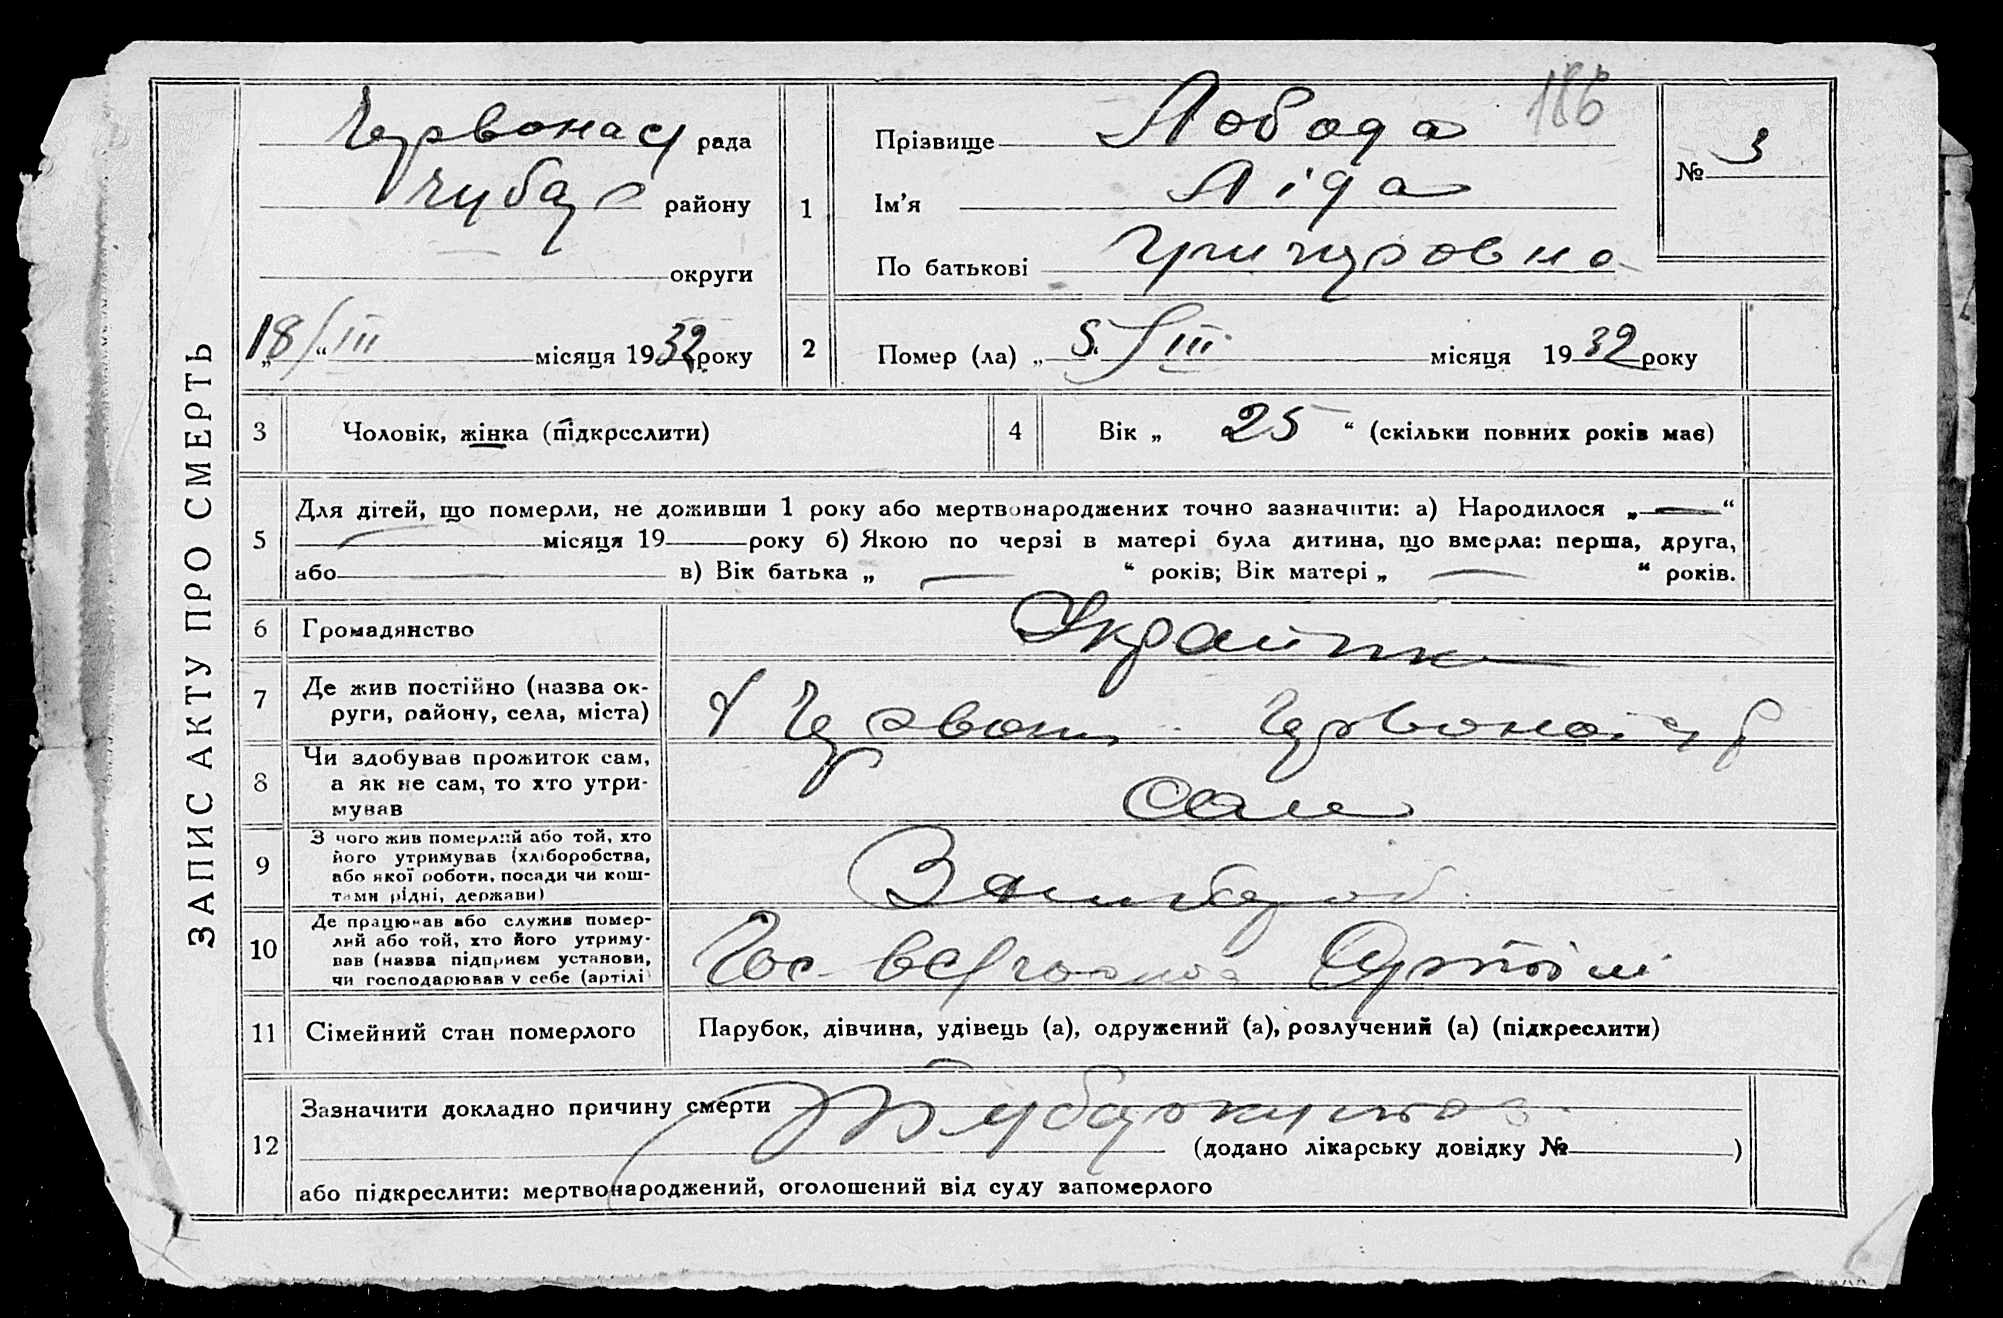 ЗАПИС АКТУ ПРО СМЕРТЬ
рада
району
округи
„18“ III місяця 1932 року
1
Прізвище Лобода
186
Ім'я Ліда
По батькові Григоровна
№ 3
2 Помер (ла) „5“ III місяця 1932 року
3 Чоловік, жінка (підкреслити)
4 Вік „ 25 “ (скільки повних років має)
5
Для дітей, що померли, не доживши 1 року або мертвонароджених точно зазначити: а) Народилося „—“
— місяця 19 року б) Якою по черзі в матері була дитина, що вмерла: перша, друга,
або — в) Вік батька „ — “ років; Вік матері „ — “ років.
6 Громадянство
7 Де жив постійно (назва ок-
руги, району, села, міста)
8 Чи здобував прожиток сам,
а як не сам, то хто утри-
мував
Сам
9 З чого жив померлий або той, хто
його утримував (хліборобства,
або якої роботи, посади чи кош-
тами рідні, держави)
10 Де працював або служив помер-
лий або той, хто його утриму-
вав (назва підприєм установи,
чи господарював у себе (артілі)
Артілі
11 Сімейний стан померлого
Парубок, дівчина, удівець (а), одружений (а), розлучений (а) (підкреслити)
12 Зазначити докладно причину смерти
(додано лікарську довідку № )
або підкреслити: мертвонароджений, оголошений від суду запомерлого